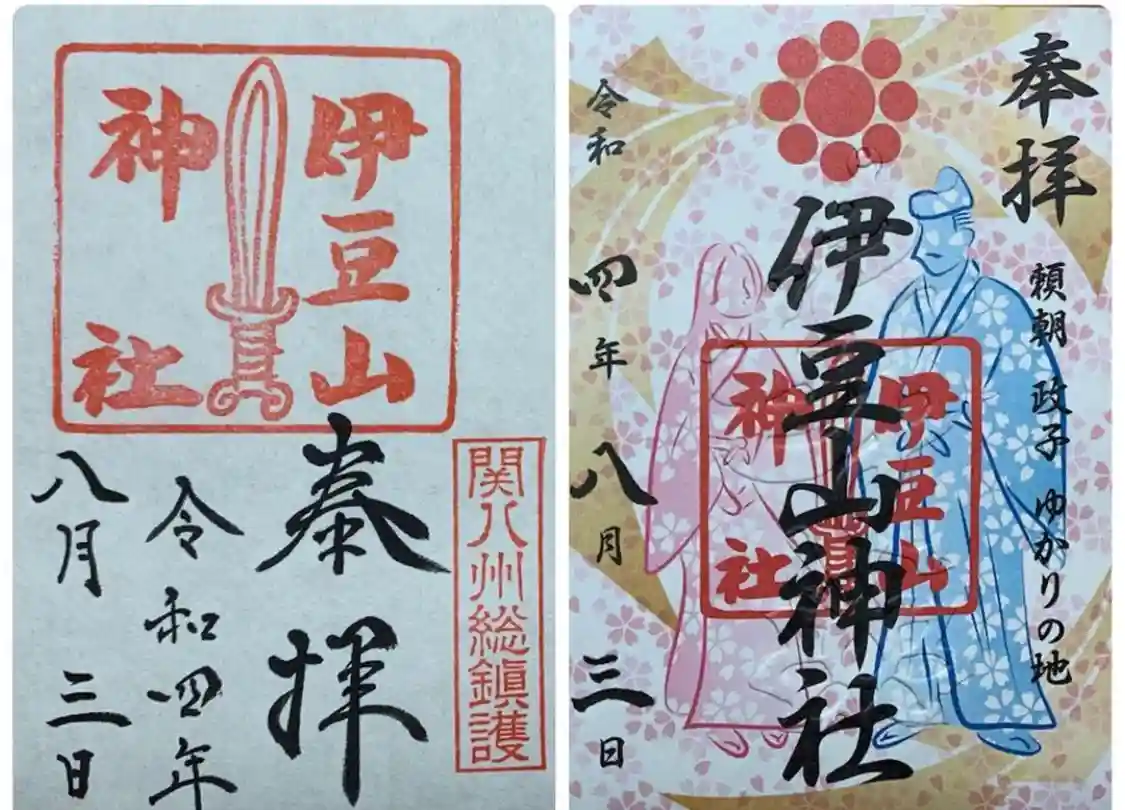 関八州総鎮護
伊豆山
神社
奉拝
令和四年
八月三日
奉拝
頼朝 政子 ゆかりの地
伊豆山神社
伊豆山
神社
令和四年八月三日